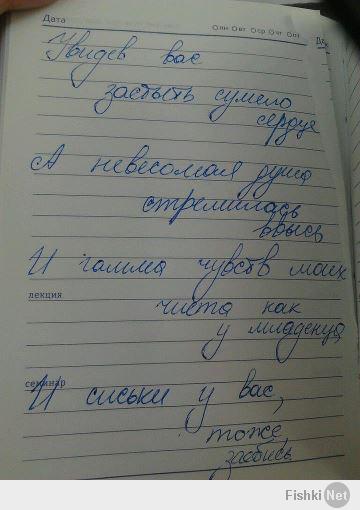 Дата
Опн Овт Оср Очг Опт
Увидев вас
застыть сумело
сердце
А невесомая душа
стремилась
ввысь
И гамма чувств моих
лекция
чиста как
у младенца
семинар
И сиськи у вас,
тоже,
заебись
Fishki Net